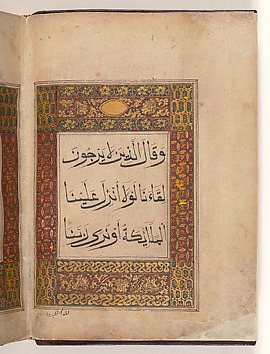 وَقَالَ الَّذِينَ لَا يَرْجُونَ
لِقَاءَنَا لَوْلَا أُنْزِلَ عَلَيْنَا
الْمَلَائِكَةُ أَوْ نَرَى رَبَّنَا